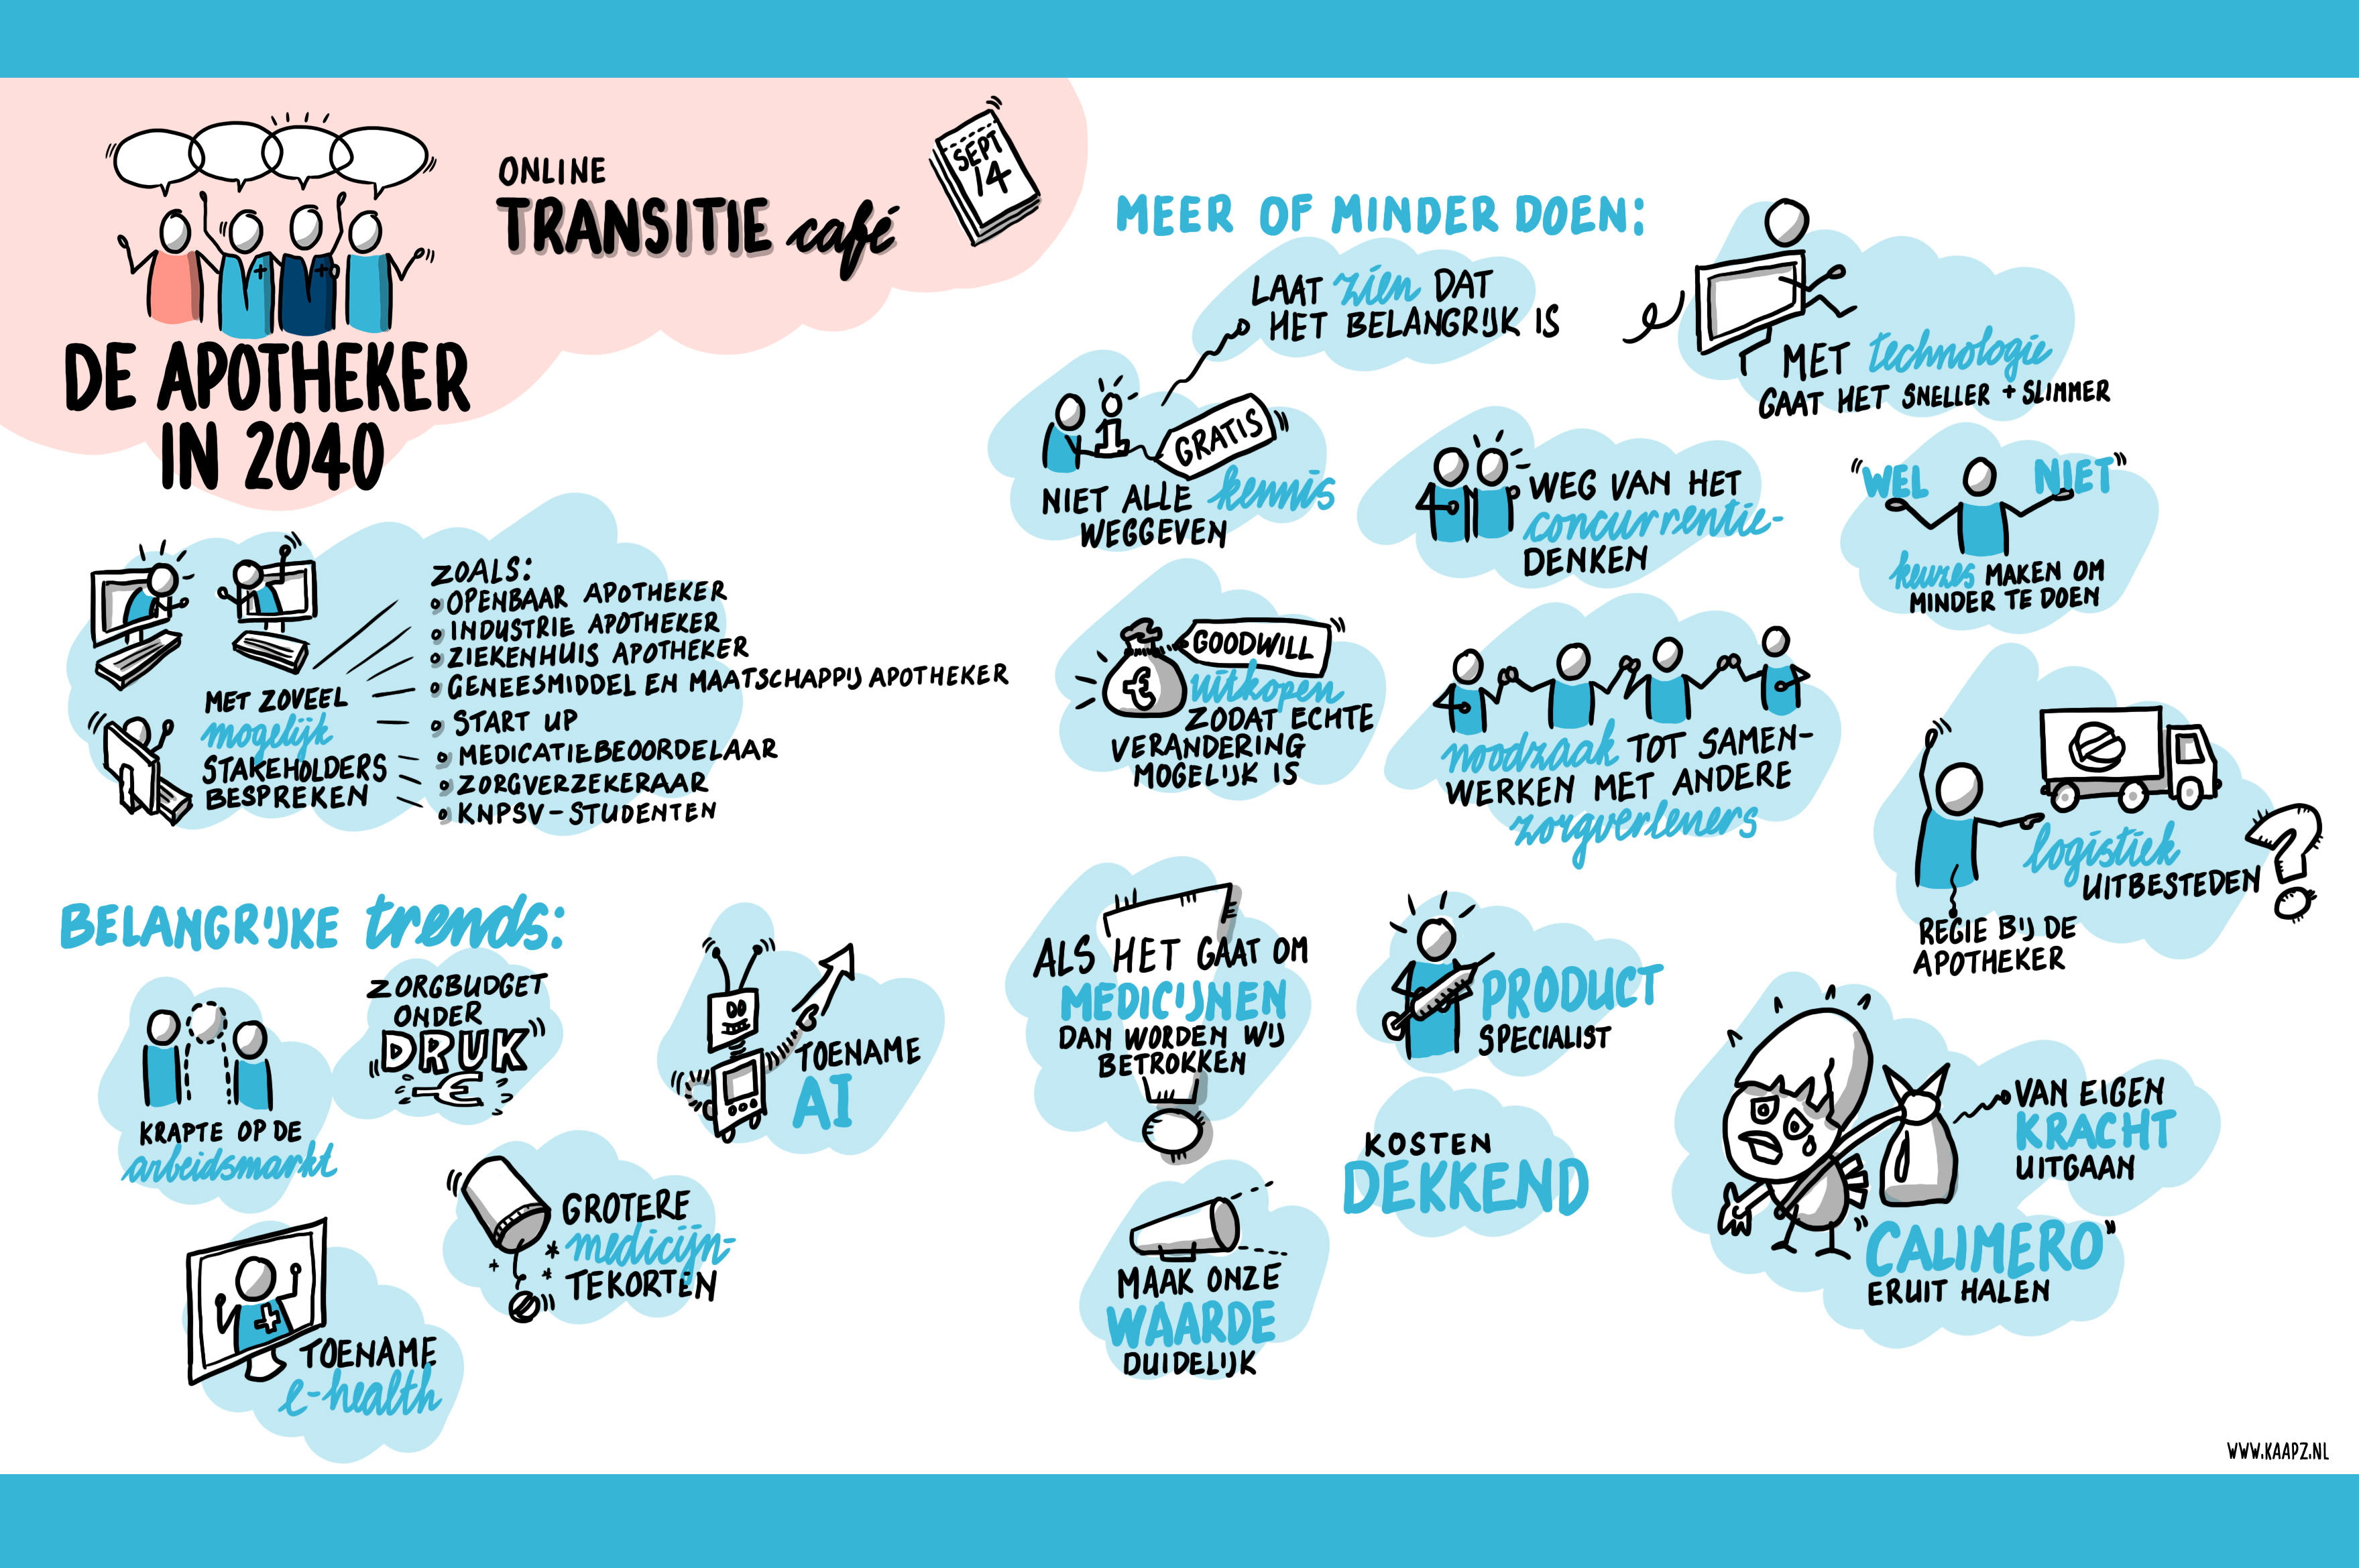 ONLINE
TRANSITIE café
SEPT
14
DE APOTHEKER
IN 2040
MET ZOVEEL
mogelijk
STAKEHOLDERS
BESPREKEN
ZOALS:
OPENBAAR APOTHEKER
INDUSTRIE APOTHEKER
ZIEKENHUIS APOTHEKER
GENEESMIDDEL EN MAATSCHAPPIJ APOTHEKER
START UP
MEDICATIEBEOORDELAAR
ZORGVERZEKERAAR
KNPSV-STUDENTEN
BELANGRIJKE trends:
KRAPTE OP DE
arbeidsmarkt
ZORGBUDGET
ONDER
"DRUK"
€
TOENAME
AI
GROTERE
medicijn-
TEKORTEN
TOENAME
e-health
MEER OF MINDER DOEN:
LAAT zien DAT
HET BELANGRIJK IS
1
GRATIS
NIET ALLE kennis
WEGGEVEN
MET technologie
GAAT HET SNELLER + SLIMMER
WEG VAN HET
concurrentie-
DENKEN
"WEL NIET"
keuzes MAKEN OM
MINDER TE DOEN
GOODWILL
€
uitkopen
ZODAT ECHTE
VERANDERING
MOGELIJK IS
noodzaak TOT SAMEN-
WERKEN MET ANDERE
zorgverleners
logistiek
UITBESTEDEN ?
REGIE BIJ DE
APOTHEKER
ALS HET GAAT OM
MEDICIJNEN
DAN WORDEN WIJ
BETROKKEN
PRODUCT
SPECIALIST
KOSTEN
DEKKEND
MAAK ONZE
WAARDE
DUIDELIJK
VAN EIGEN
KRACHT
UITGAAN
"CALIMERO"
ERUIT HALEN
WWW.KAAPZ.NL